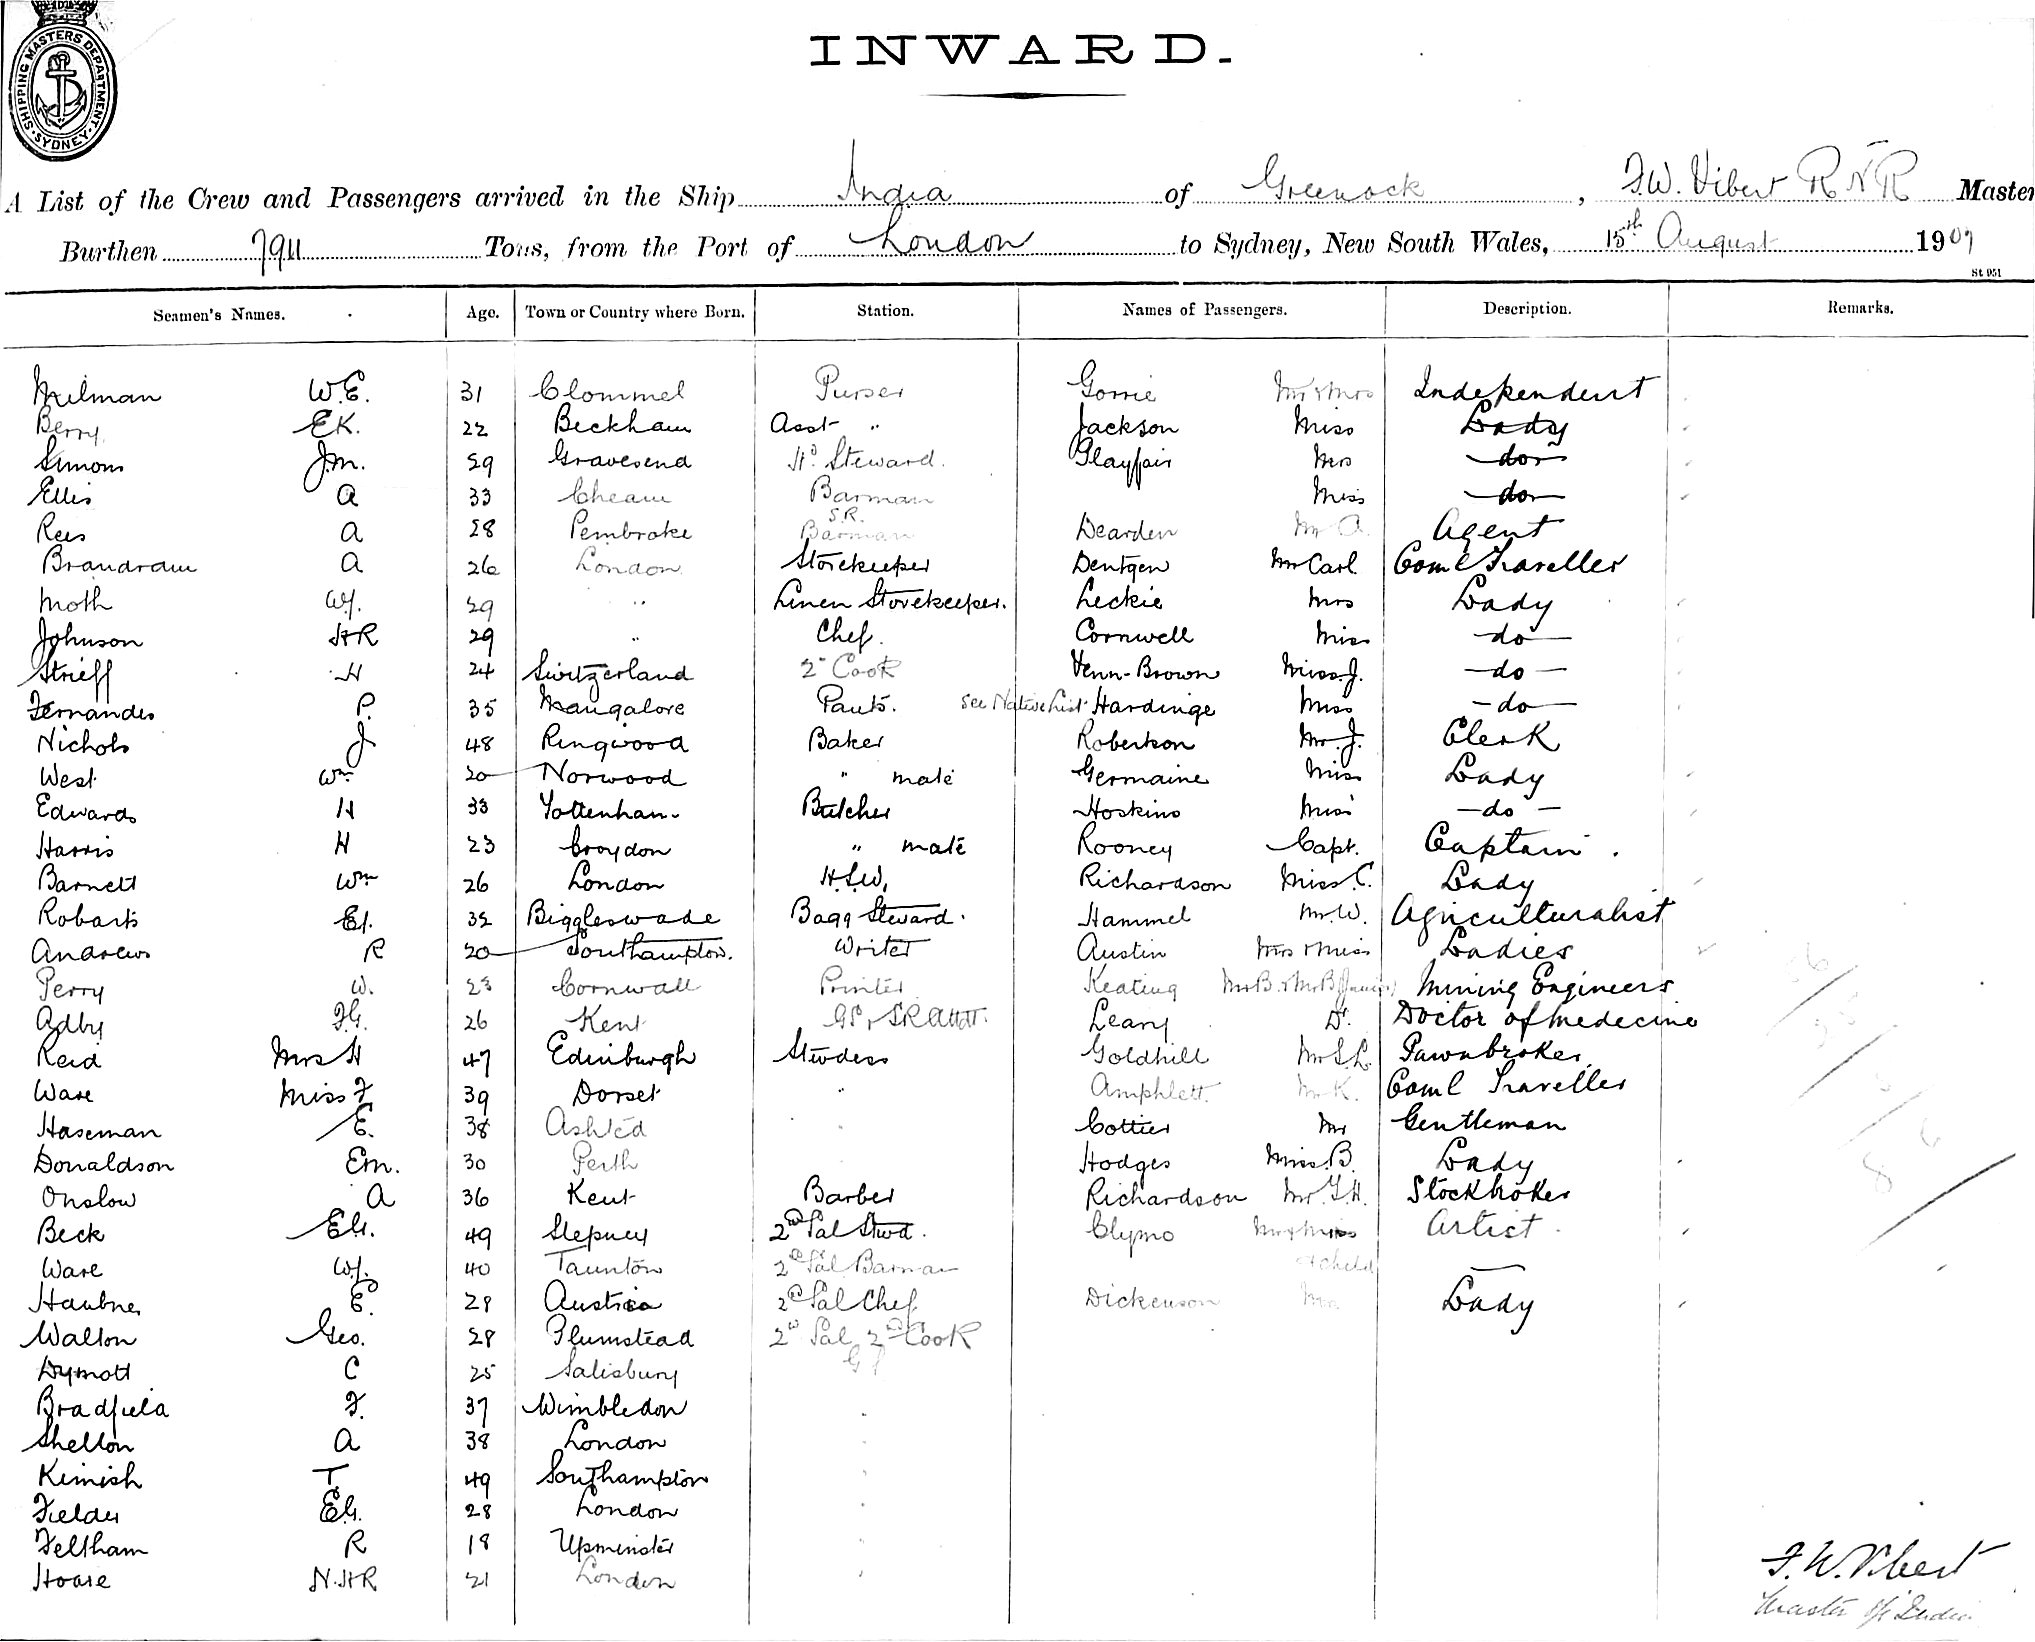 SHIPPING MASTERS DEPARTMENT · SYDNEY ·
INWARD.
A List of the Crew and Passengers arrived in the Ship India of Greenock, F.W. Vibert R N R Master
Burthen 7911 Tons, from the Port of London to Sydney, New South Wales, 15th August 1907
St 951
Seamen's Names. Age. Town or Country where Born. Station. Names of Passengers. Description. Remarks.
Milman W.E. 31 Clommel Purser Gorrie Mr & Mrs Independent
Berry EK. 22 Beckham Asst " Jackson Miss Lady
Simons J.M. 29 Gravesend Hd Steward. Playfair Mrs do
Ellis A 33 Cheam Barman Miss do
Rees A 28 Pembroke S.R. Barman Dearden Mr A. Agent
Brandram A 26 London Storekeeper Dentgen Mr Carl Coml Traveller
Moth WJ. 29 " Linen Storekeeper. Leckie Mrs Lady
Johnson HR 29 " Chef. Cornwell Miss do
Strieff H 24 Switzerland 2d Cook Venn-Brown Miss J. do
Fernandes P. 35 Mangalore Pants. See Native List Hardinge Miss do
Nichols J 48 Ringwood Baker Robertson Mr. J. Clerk
West Wm 20 Norwood " mate Germaine Miss Lady
Edwards H 33 Tottenham. Butcher Hoskins Miss do
Harris H 23 Croydon " mate Rooney Capt. Captain.
Barnett Wm 26 London H.S.W. Richardson Miss C. Lady
Robarts EJ. 32 Biggleswade Bagg Steward. Hammel Mr. W. Agriculturalist
Andrews R 20 Southampton. Writer Austin Mrs & Miss Ladies
Perry W. 23 Cornwall Printer Keating Mr B. & Mr B (Junior) Mining Engineers
Adby F.G. 26 Kent GS, SR Attdt. Leary Dr. Doctor of Medecine
Reid Mrs H 47 Edinburgh Stewdess Goldhill Mr S.L. Pawnbroker
Ware Miss F 39 Dorset " Amphlett Mr K. Coml Traveller
Haseman E. 38 Ashted " Cottier Mr Gentleman
Donaldson Em. 30 Perth Hodges Miss. B. Lady
Onslow A 36 Kent Barber Richardson Mr. F.H. Stockbroker
Beck EG. 49 Stepney 2nd Sal Stwd. Clymo Mr & Mrs Artist
Ware WJ. 40 Taunton 2nd Sal Barman & child
Haubner E. 28 Austria 2nd Sal Chef Dickenson Mrs. Lady
Walton Geo. 28 Plumstead 2nd Sal 2nd Cook
Dymott C 25 Salisbury G S
Bradfield F. 37 Wimbledon "
Shelton A 38 London "
Kimish T 49 Southampton "
Fielder EG. 28 London "
Feltham R 18 Upminster "
Hoare N.HR 21 London "
F. W. Vibert
Master of India